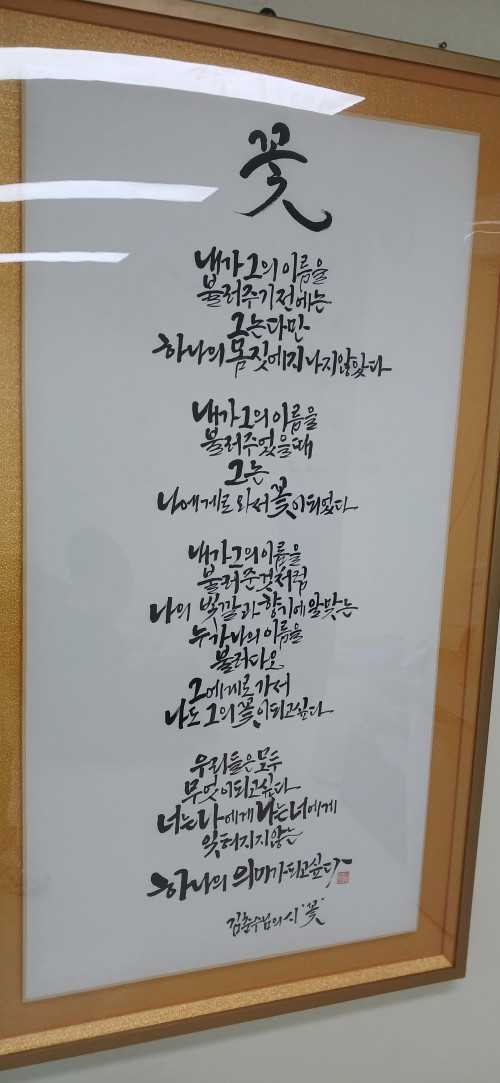 꽃
내가 그의 이름을
불러주기전에는
그는 다만
하나의 몸짓에 지나지 않았다
내가 그의 이름을
불러주었을때
그는
나에게로 와서 꽃이 되었다
내가 그의 이름을
불러준것처럼
나의 빛깔과 향기에 알맞는
누가 나의 이름을
불러다오
그에게로 가서
나도 그의 꽃이 되고싶다
우리들은 모두
무엇이 되고싶다
너는 나에게 나는 너에게
잊혀지지않는
하나의 의미가 되고싶다
김춘수님의 시 '꽃'